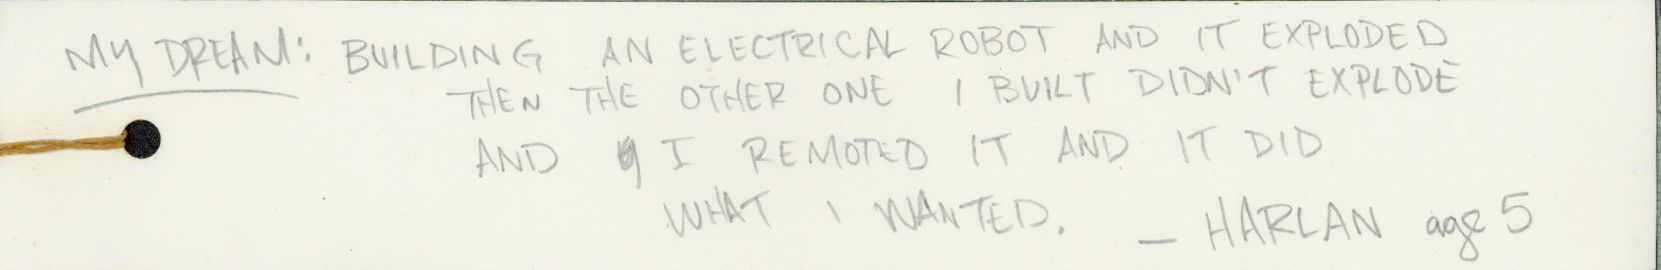 MY DREAM: BUILDING AN ELECTRICAL ROBOT AND IT EXPLODED
THEN THE OTHER ONE I BUILT DIDN'T EXPLODE
AND I REMOTED IT AND IT DID
WHAT I WANTED.
— HARLAN age 5